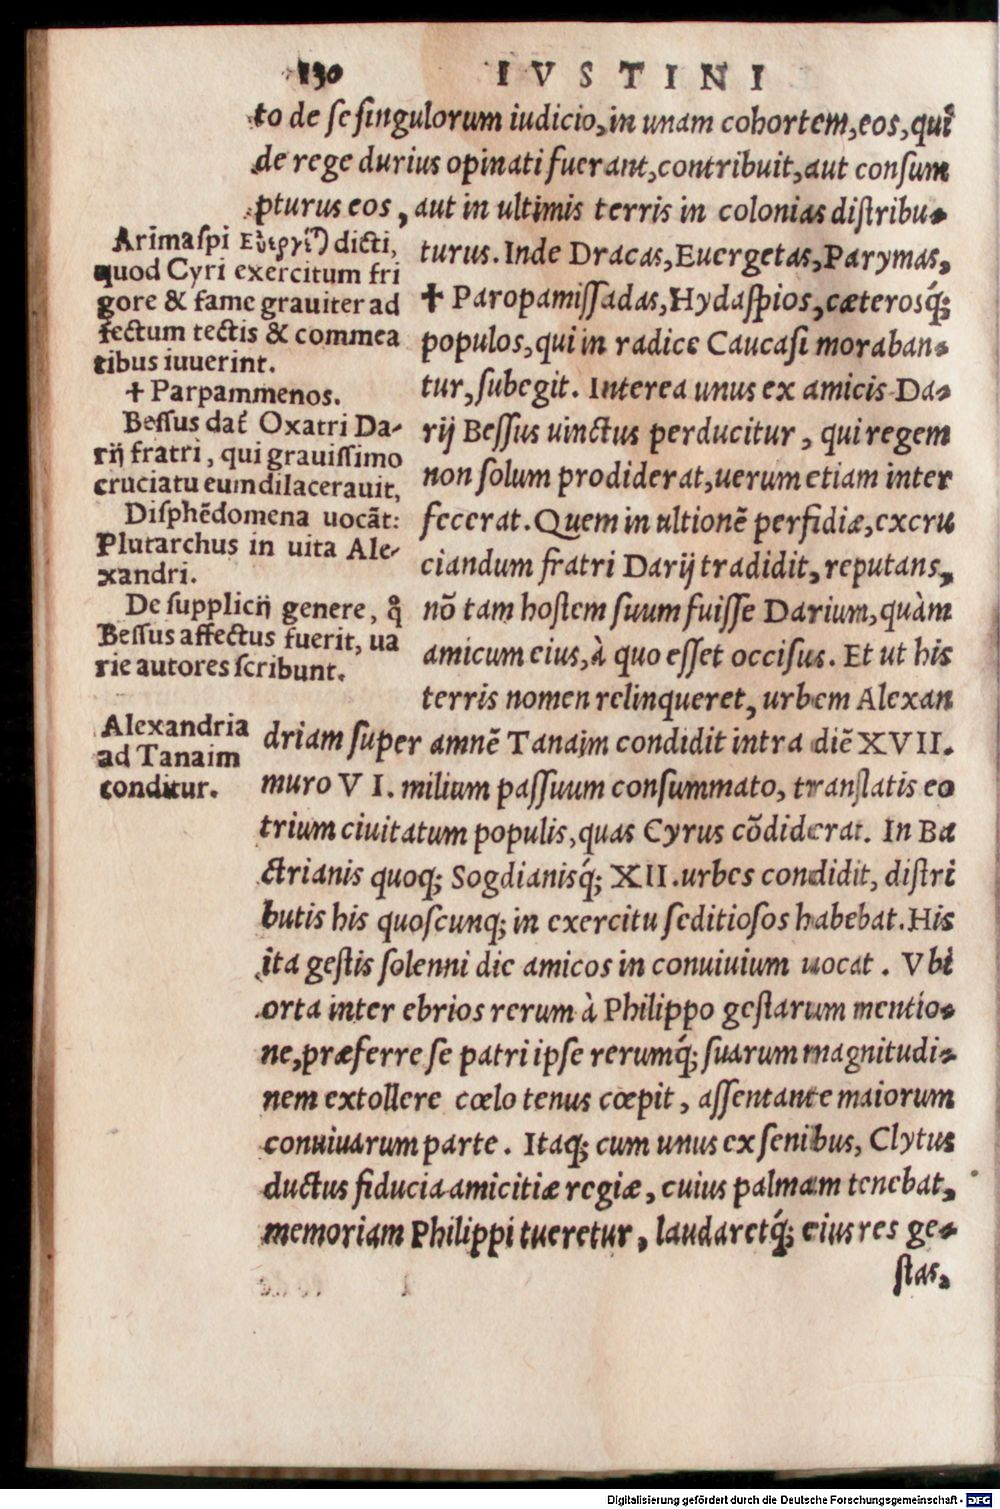 130 IVSTINI
to de ſe ſingulorum iudicio, in unam cohortem, eos, qui
de rege durius opinati fuerant, contribuit, aut conſum
pturus eos, aut in ultimis terris in colonias diſtribu-
turus. Inde Dracas, Euergetas, Parymas,
✝ Paropamiſſadas, Hydaſpios, cæterosq́;
populos, qui in radice Caucaſi moraban-
tur, ſubegit. Interea unus ex amicis Da-
rij Beſſus uinctus perducitur, qui regem
non ſolum prodiderat, uerum etiam inter
fecerat. Quem in ultionē perfidiæ, excru
ciandum fratri Darij tradidit, reputans,
nō tam hoſtem ſuum fuiſſe Darium, quàm
amicum eius, à quo eſſet occiſus. Et ut his
terris nomen relinqueret, urbem Alexan
driam ſuper amnē Tanaim condidit intra diē XVII.
muro VI. milium paſſuum conſummato, tranſlatis eo
trium ciuitatum populis, quas Cyrus cōdiderat. In Ba
ctrianis quoq; Sogdianisq́; XII. urbes condidit, diſtri
butis his quoſcunq; in exercitu ſeditioſos habebat. His
ita geſtis ſolenni die amicos in conuiuium uocat. Vbi
orta inter ebrios rerum à Philippo geſtarum mentio-
ne, præferre ſe patri ipſe rerumq́; ſuarum magnitudi-
nem extollere cœlo tenus cœpit, aſſentante maiorum
conuiuarum parte. Itaq; cum unus ex ſenibus, Clytus
ductus fiducia amicitiæ regiæ, cuius palmam tenebat,
memoriam Philippi tueretur, laudaretq́; eius res ge-
ſtas,
Arimaſpi dicti,
quod Cyri exercitum fri
gore & fame grauiter ad
fectum tectis & commea
tibus iuuerint.
✝ Parpammenos.
Beſſus dat́ Oxatri Da-
rij fratri, qui grauiſſimo
cruciatu eum dilacerauit,
Diſphēdomena uocāt:
Plutarchus in uita Ale-
xandri.
De ſupplicij genere, q̊
Beſſus affectus fuerit, ua
rie autores ſcribunt.
Alexandria
ad Tanaim
conditur.
Digitalisierung gefördert durch die Deutsche Forschungsgemeinschaft - DFG